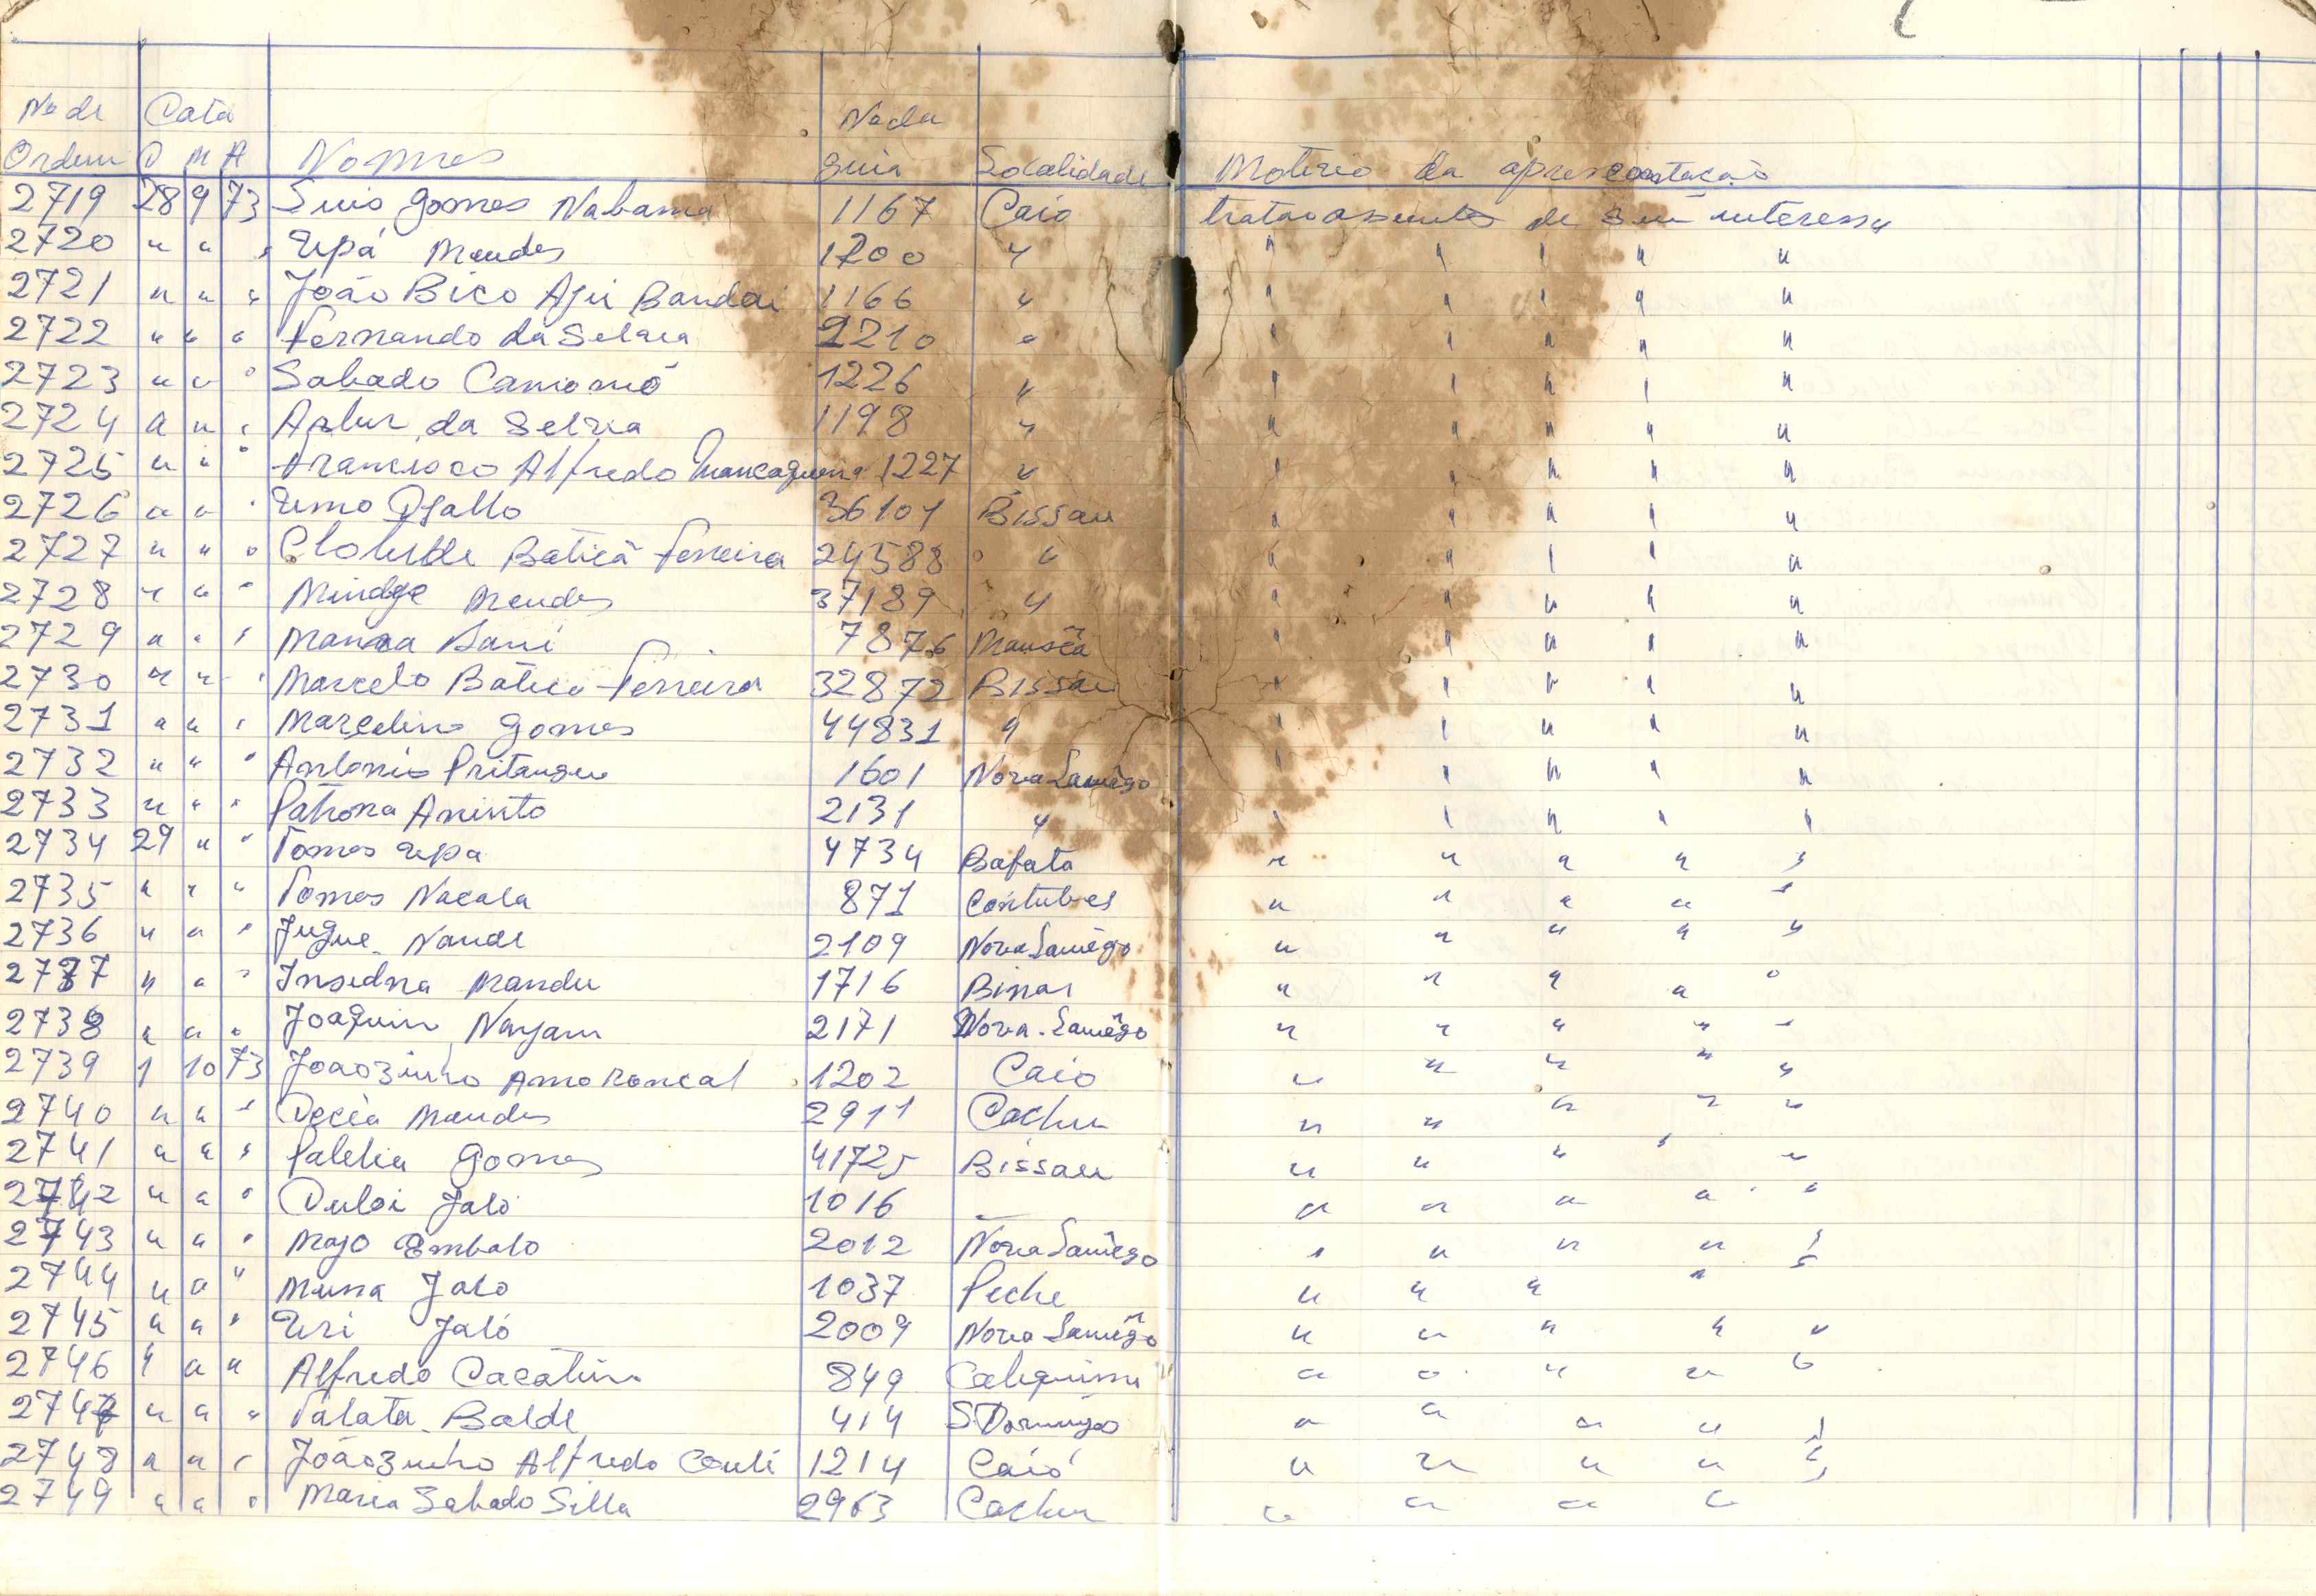 No de Data No da
Ordem D M A Nomes guia Localidade Motivo da apresentação
2719 28 9 73 Luis Gomes Nabama 1167 Caio tratar assuntos de seu interesse
2720 " " " Upá Mendes 1200 " " " " " "
2721 " " " João Bico Aju Bandai 1166 " " " " " "
2722 " " " Fernando da Selva 2210 " " " " " "
2723 " " " Sabado Camomó 1226 " " " " " "
2724 " " " Artur da Selva 1198 " " " " " "
2725 " " " Francisco Alfredo Mancaguena 1227 " " " " " "
2726 " " " Umo Djallo 36101 Bissau " " " " "
2727 " " " Clotilde Baticã Ferreira 24588 " " " " " "
2728 " " " Mindge Mendes 37189 " " " " " "
2729 " " " Manra Bani 7876 Mansôa " " " " "
2730 " " " Marcelo Batica Ferreira 32872 Bissau " " " " "
2731 " " " Marcelino Gomes 44831 " " " " " "
2732 " " " Antonio Pritangue 1601 Nova Lamêgo " " " "
2733 " " " Patrona Aninto 2131 " " " " " "
2734 29 " " Tomas Upa 4734 Bafata " " " " "
2735 " " " Tomas Nacala 871 Contubel " " " " "
2736 " " " Jugue Nande 2109 Nova Lamêgo " " " " "
2737 " " " Insedna Mandu 1716 Binar " " " " "
2738 " " " Joaquim Nanjam 2171 Nova-Lamêgo " " " " "
2739 1 10 73 Joaozinho Amo Roncal 1202 Caio " " " " "
2740 " " " Decéa Mendes 2911 Cacheu " " " " "
2741 " " " Paletia Gomes 41725 Bissau " " " " "
2742 " " " Duloi Jaló 1016 " " " " "
2743 " " " Majo Embalo 2012 Nova Lamêgo " " " " "
2744 " " " Mussa Jalo 1037 Piche " " " "
2745 " " " Uri Jaló 2009 Nova Lamêgo " " " " "
2746 " " " Alfredo Cacátura 849 Calequisse " " " " "
2747 " " " Talata Balde 414 S Domingos " " " " "
2748 " " " Joãozinho Alfredo Conté 1214 Caió " " " " "
2749 " " " Maria Sabado Silla 2963 Cacheu " " " "